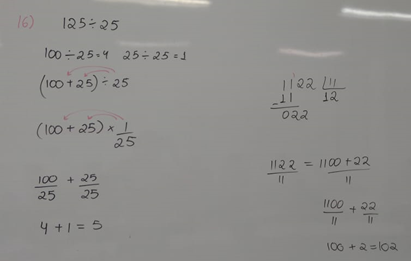 16) 125÷25
100÷25=4 25÷25=1
(100+25)÷25
(100+25)×1/25
100/25 + 25/25
4+1=5
1122 | 11
-11 12
022
1122/11 = 1100+22/11
1100/11 + 22/11
100+2=102